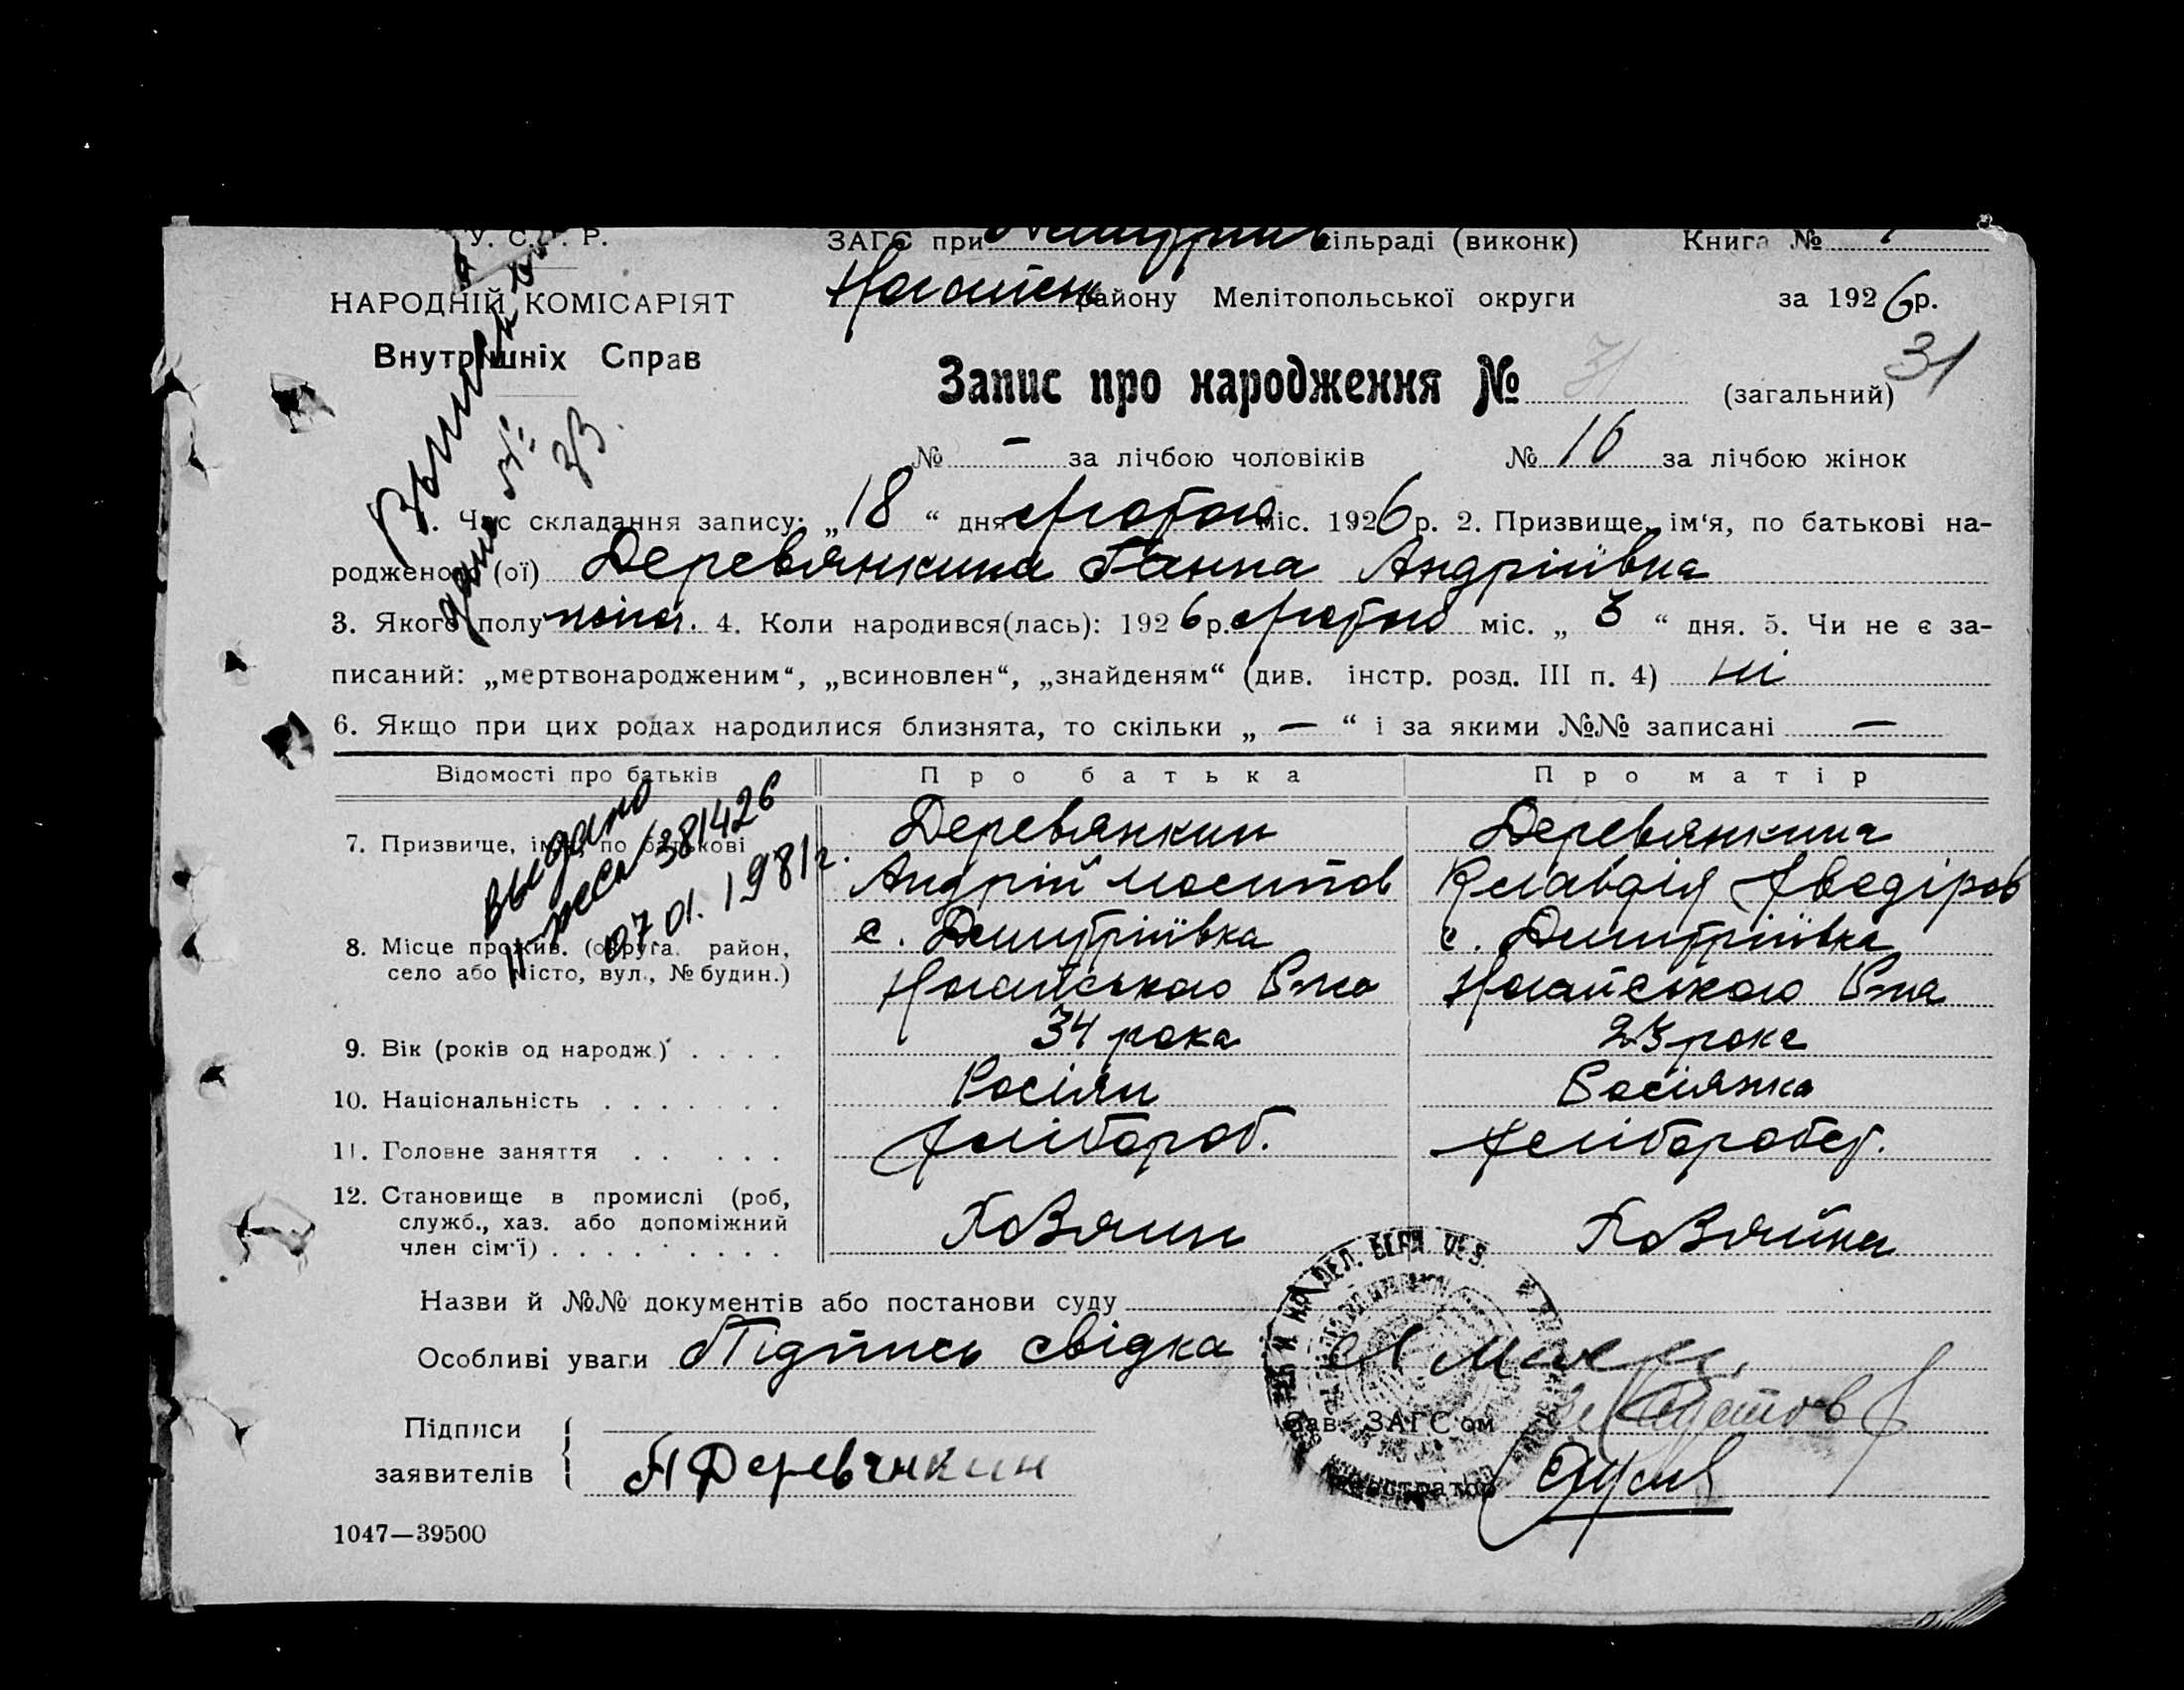 У. С. Р. Р.
ЗАГС при сільраді (виконк) Книга №
НАРОДНІЙ КОМІСАРІЯТ
району Мелітопольської округи за 1926 р.
Внутрішніх Справ
Запис про народження № 31 (загальний) 31
№ — за лічбою чоловіків № 16 за лічбою жінок
1. Час складання запису: „18“ дня лютого міс. 1926 р. 2. Призвище, ім‘я, по батькові на-
родженого (ої) Деревянкина Ганна Андріївна
3. Якого полу жіноч. 4. Коли народився(лась): 1926 р. лютого міс. „3“ дня. 5. Чи не є за-
писаний: „мертвонародженим“, „всиновлен“, „знайденям“ (див. інстр. розд. III п. 4) ні
6. Якщо при цих родах народилися близнята, то скільки „—“ і за якими №№ записані —
Відомості про батьків Про батька Про матір
выдано
381426
07.01.1981 г.
7. Призвище, ім‘я, по батькові Деревянкин Деревянкина
Андрій Клавдія
с. Дмитріївка с. Дмитріївка
8. Місце прожив. (округа, район,
село або місто, вул., № будин.)
Ногайського Р-на Ногайського Р-на
9. Вік (років од народж.) . . . . 34 рока 23 рока
10. Національність . . . . . . . Росіян Росіянка
11. Головне заняття . . . . . . Хлібороб. Хлібороб.
12. Становище в промислі (роб,
служб., хаз. або допоміжний
член сім‘ї) . . . . . . . . . . Хозяин Хозяйка
Назви й №№ документів або постанови суду
Особливі уваги Підпись свідка
Підписи
заявителів
Зав. ЗАГС‘ом
А Деревянкин
Реєстратор
1047—39500